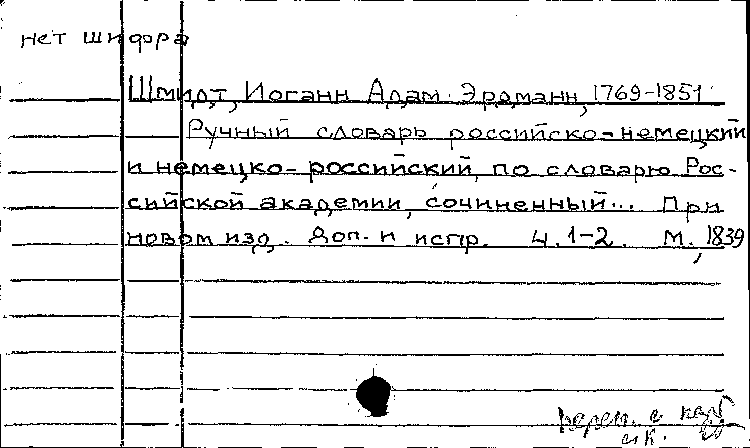 нет шифра
Шмидт, Иоганн Адам Эрдманн, 1769-1851
Ручный словарь российско-немецкий
и немецко-российский, по словарю Рос-
сийской академии, сочиненный... При
новом изд. доп. и испр. Ч. 1-2. М., 1839
перен. с